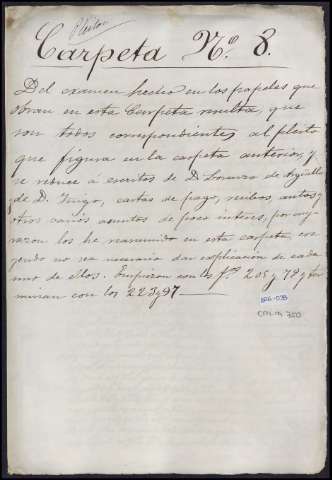 Pleitos
Carpeta N.º 8.
Del examen hecho en los papeles que
obran en esta Carpeta resulta, que
son todos correspondientes al pleito
que figura en la carpeta anterior, y
se reduce á escritos de D. Lorenzo de
de D. Yñigo, cartas de pago, recibos, autos y
otros varios asuntos de poco interes, por cuya
razon los he reasumido en esta carpeta, cre
yendo no sea necesario dar esplicacion de cada
uno de ellos. Empiezan con los f.os 205 y 78 y ter
minan con los 223 y 97